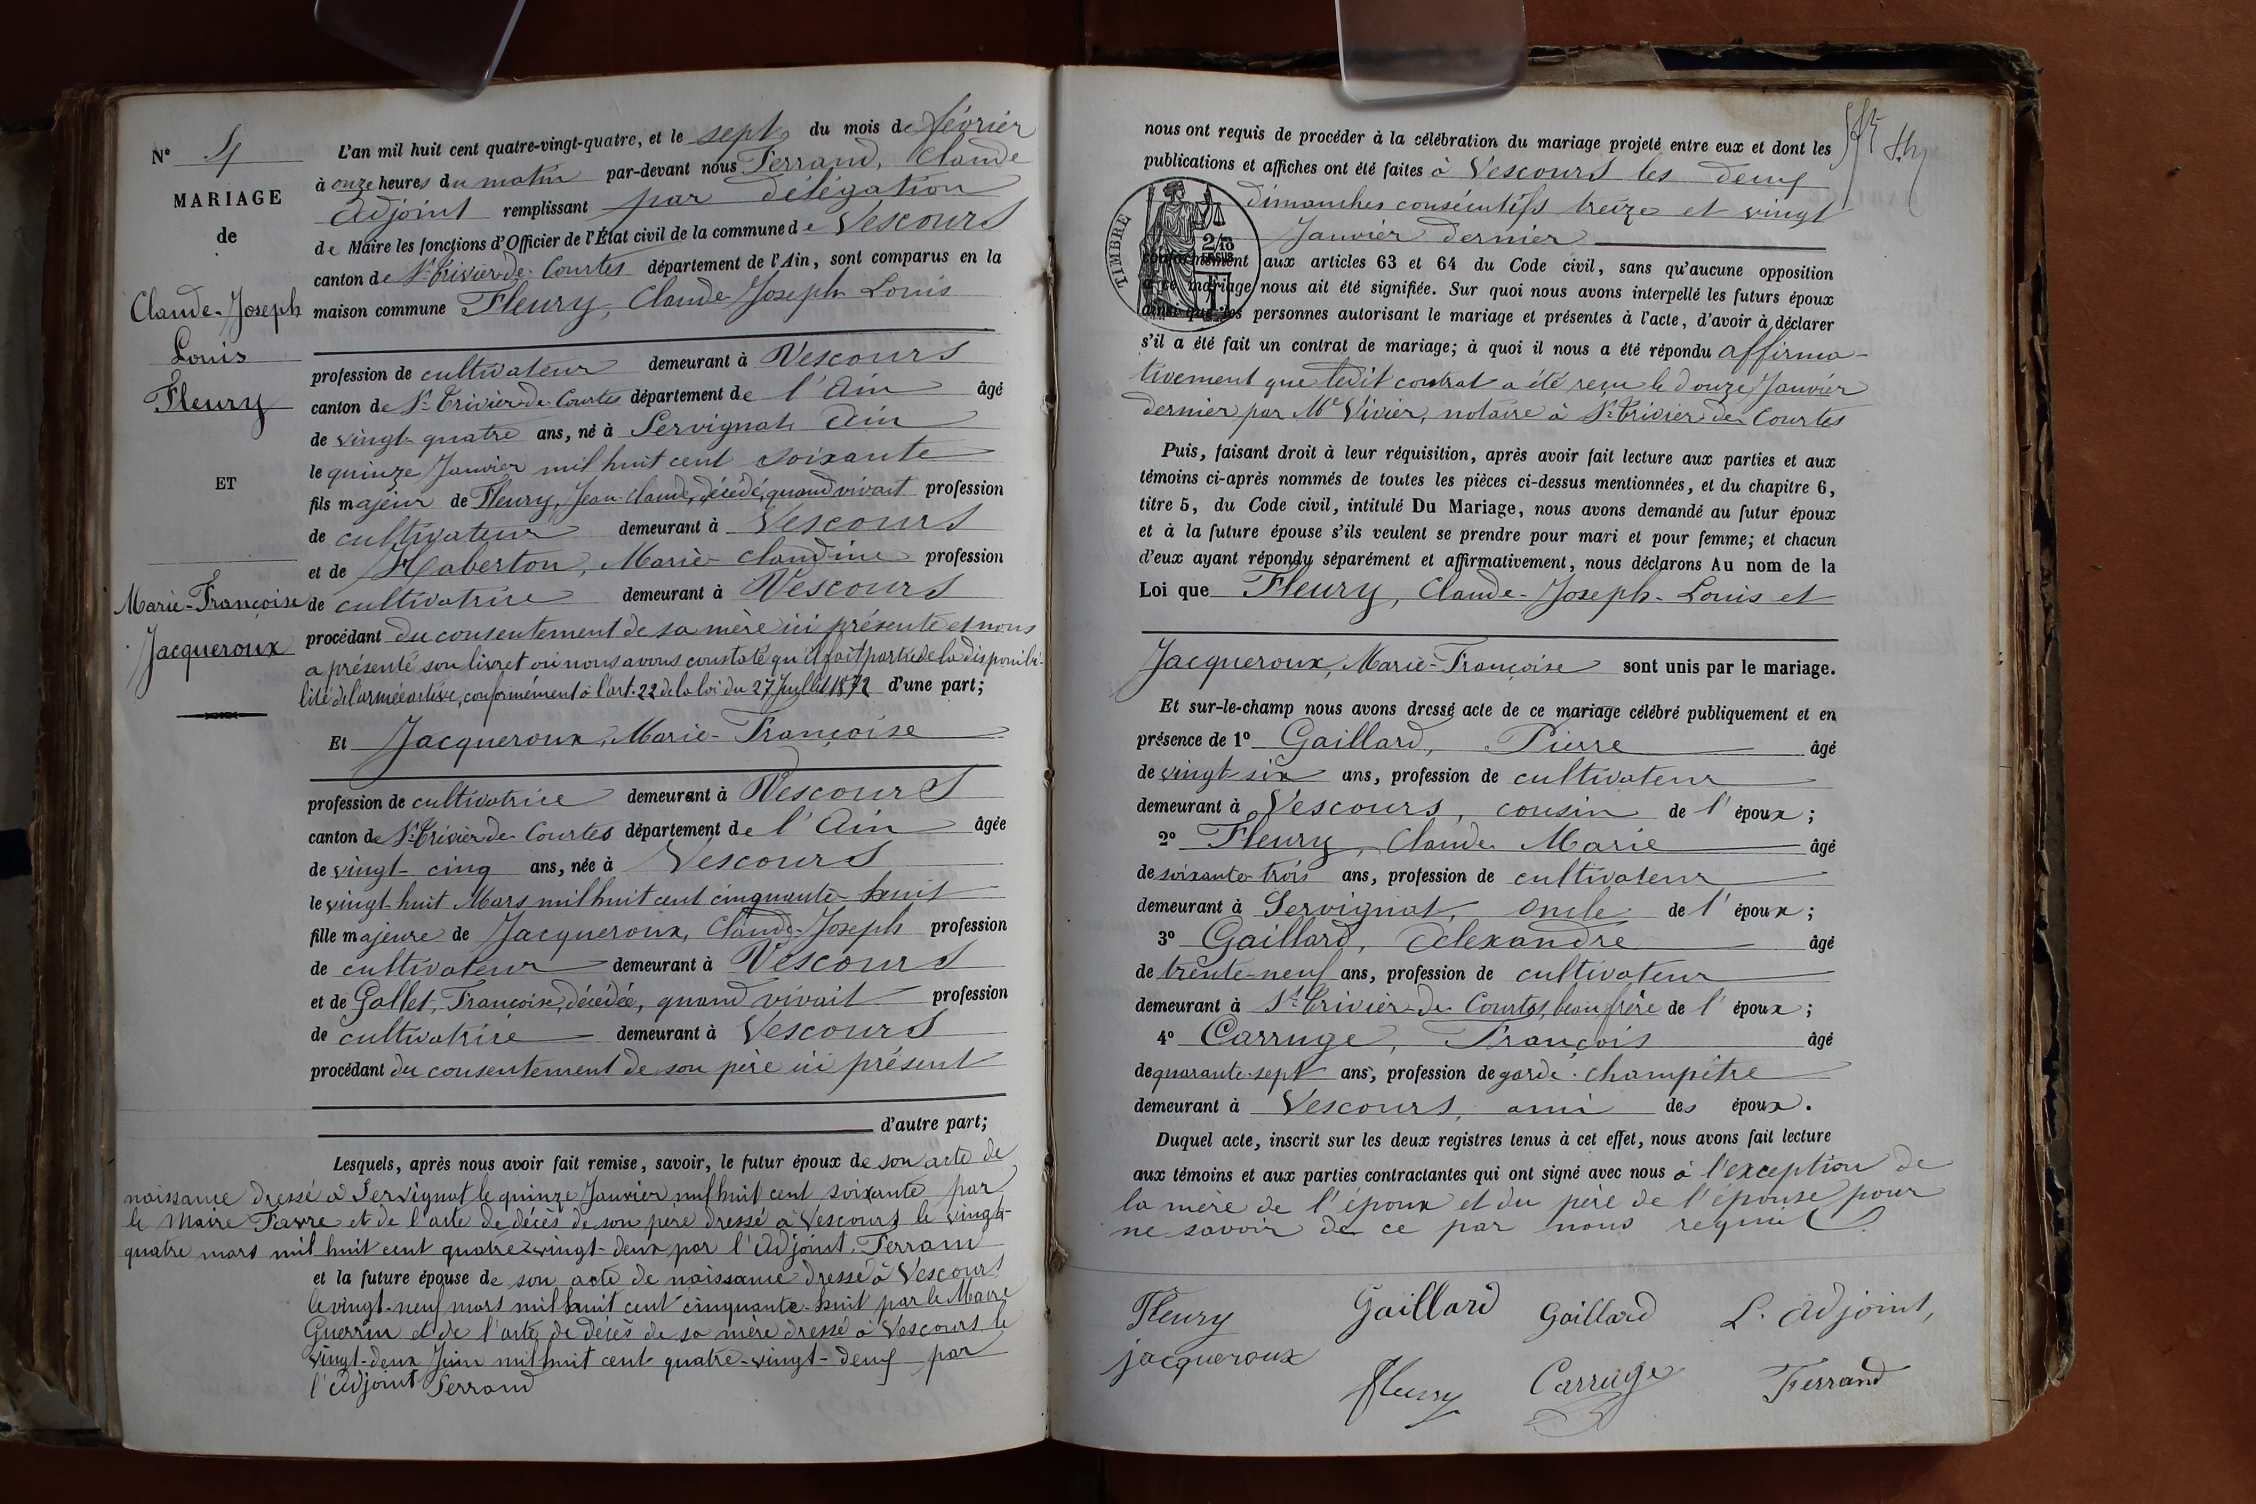 N° 4
MARIAGE
de
Claude-Joseph
Louis
Fleury
ET
Marie-Françoise
Jacqueroux
L'an mil huit cent quatre-vingt-quatre, et le sept du mois de février
à onze heures du matin par-devant nous Ferrand, Claude
Adjoint remplissant par délégation
de Maire les fonctions d'Officier de l'État civil de la commune de Vescours
canton de St Trivier-de-Courtes département de l'Ain, sont comparus en la
maison commune Fleury, Claude-Joseph-Louis
profession de cultivateur demeurant à Vescours
canton de St Trivier-de-Courtes département de l'Ain âgé
de vingt-quatre ans, né à Servignat Ain
le quinze Janvier mil huit cent soixante
fils majeur de Fleury, Jean-Claude, décédé, quand vivait profession
de cultivateur demeurant à Vescours
et de Haberton, Marie-Claudine profession
de cultivatrice demeurant à Vescours
procédant du consentement de sa mère ici présente et nous
a présenté son livret où nous avons constaté qu'il fait partie de la disponibi-
lité de l'armée active, conformément à l'art. 22 de la loi du 27 Juillet 1872 d'une part;
Et Jacqueroux, Marie-Françoise
profession de cultivatrice demeurant à Vescours
canton de St Trivier-de-Courtes département de l'Ain âgée
de vingt-cinq ans, née à Vescours
le vingt-huit Mars mil huit cent cinquante-huit
fille majeure de Jacqueroux, Claude-Joseph profession
de cultivateur demeurant à Vescours
et de Gallet, Françoise, décédée, quand vivait profession
de cultivatrice demeurant à Vescours
procédant du consentement de son père ici présent
d'autre part;
Lesquels, après nous avoir fait remise, savoir, le futur époux de son acte de
naissance dressé à Servignat le quinze Janvier mil huit cent soixante par
le Maire Favre et de l'acte de décès de son père dressé à Vescours le vingt-
quatre mars mil huit cent quatre-vingt-deux par l'Adjoint Ferrand
et la future épouse de son acte de naissance dressé à Vescours
le vingt-neuf mars mil huit cent cinquante-huit par le Maire
Guerrin et de l'acte de décès de sa mère dressé à Vescours le
vingt-deux Juin mil huit cent quatre-vingt-deux par
l'Adjoint Ferrand
nous ont requis de procéder à la célébration du mariage projeté entre eux et dont les
publications et affiches ont été faites à Vescours les deux
dimanches consécutifs treize et vingt
Janvier dernier
TIMBRE
2/10
conformément aux articles 63 et 64 du Code civil, sans qu'aucune opposition
à ce mariage nous ait été signifiée. Sur quoi nous avons interpellé les futurs époux
ainsi que les personnes autorisant le mariage et présentes à l'acte, d'avoir à déclarer
s'il a été fait un contrat de mariage; à quoi il nous a été répondu affirma-
tivement que ledit contrat a été reçu le douze Janvier
dernier par Me Vivier, notaire à St Trivier-de-Courtes
Puis, faisant droit à leur réquisition, après avoir fait lecture aux parties et aux
témoins ci-après nommés de toutes les pièces ci-dessus mentionnées, et du chapitre 6,
titre 5, du Code civil, intitulé Du Mariage, nous avons demandé au futur époux
et à la future épouse s'ils veulent se prendre pour mari et pour femme; et chacun
d'eux ayant répondu séparément et affirmativement, nous déclarons Au nom de la
Loi que Fleury, Claude-Joseph-Louis et
Jacqueroux, Marie-Françoise sont unis par le mariage.
Et sur-le-champ nous avons dressé acte de ce mariage célébré publiquement et en
présence de 1° Gaillard, Pierre âgé
de vingt six ans, profession de cultivateur
demeurant à Vescours, cousin de l'époux;
2° Fleury, Claude Marie âgé
de soixante-trois ans, profession de cultivateur
demeurant à Servignat, oncle de l'époux;
3° Gaillard, Alexandre âgé
de trente-neuf ans, profession de cultivateur
demeurant à St Trivier-de-Courtes, beau frère de l'époux;
4° Carruge, François âgé
de quarante-sept ans, profession de garde-champêtre
demeurant à Vescours, ami des époux.
Duquel acte, inscrit sur les deux registres tenus à cet effet, nous avons fait lecture
aux témoins et aux parties contractantes qui ont signé avec nous à l'exception de
la mère de l'époux et du père de l'épouse pour
ne savoir de ce par nous requis
Fleury Gaillard Gaillard L'Adjoint,
jacqueroux Fleury Carruge Ferrand